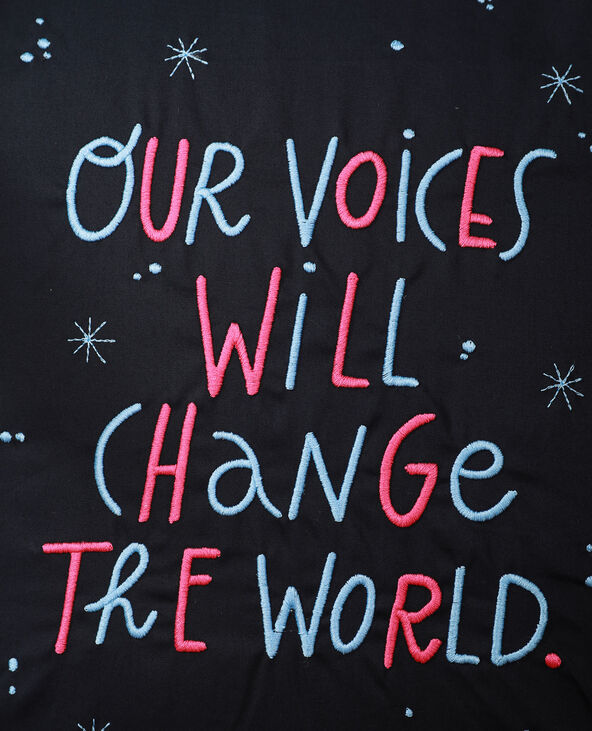 OUR VOiCES
WiLL
CHaNGe
THE WORLD.